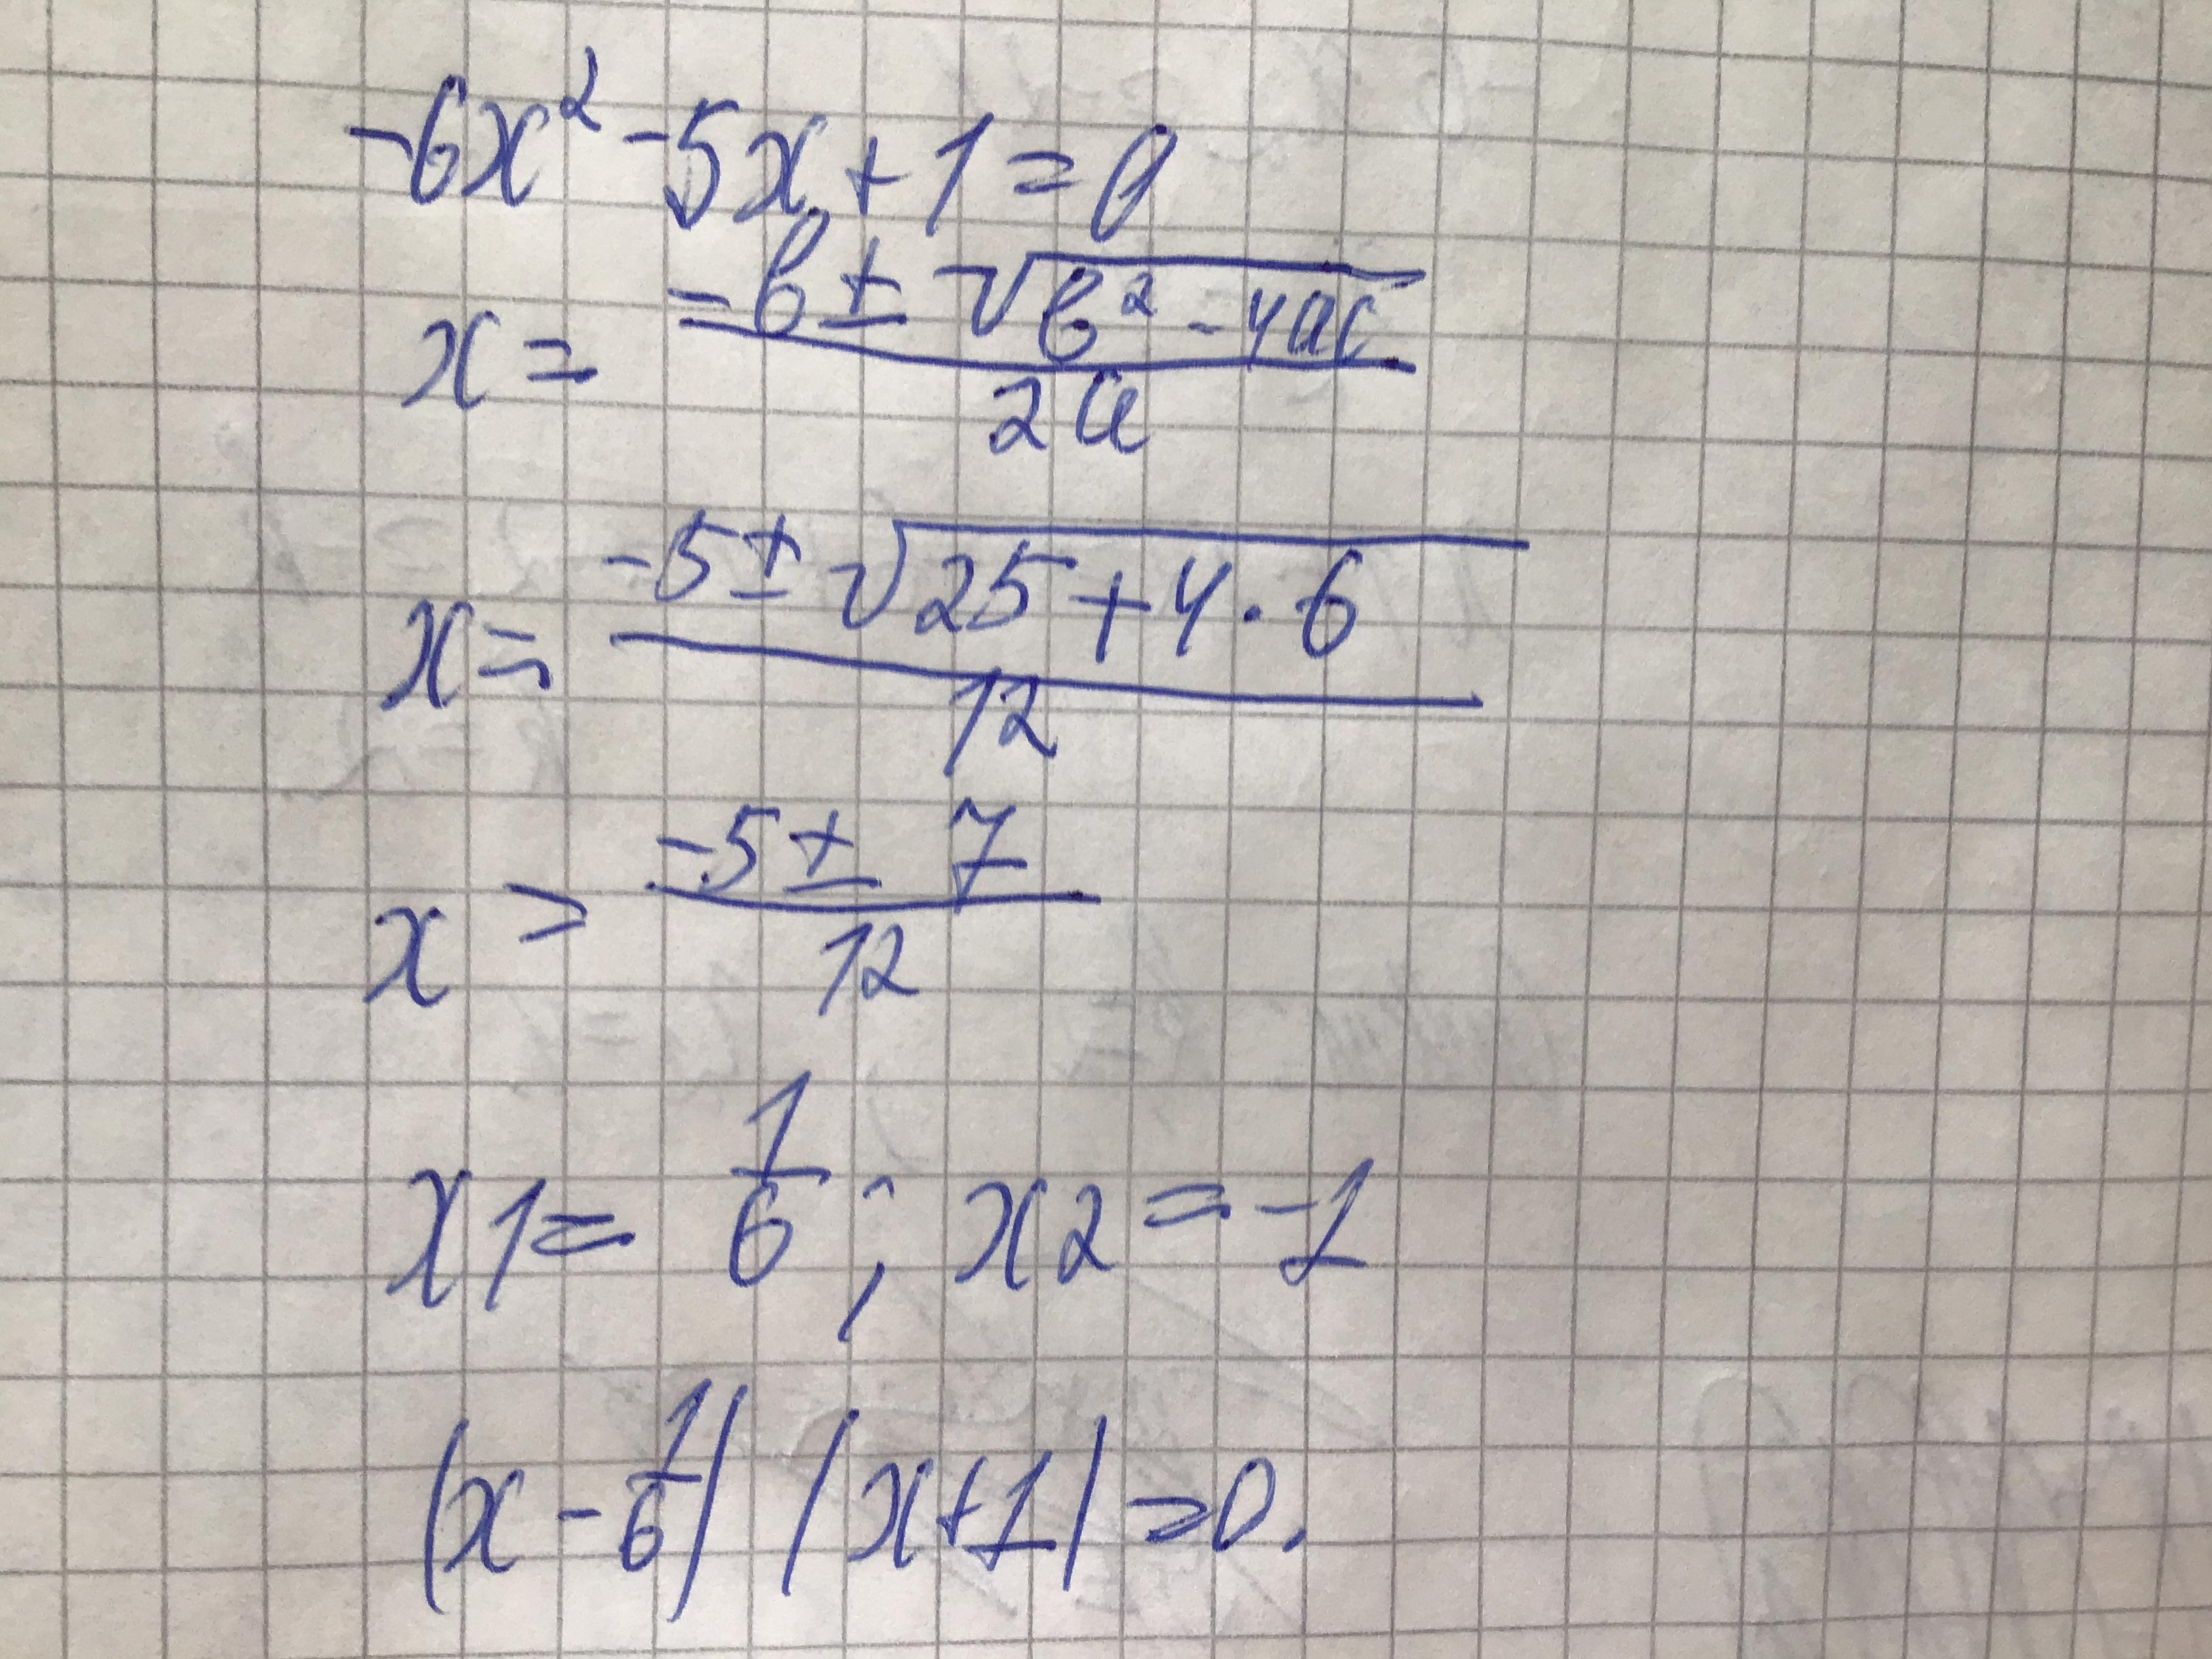 -6x² -5x + 1 = 0
x = -b ± √b² - 4ac / 2a
x = -5 ± √25 + 4 · 6 / 12
x = -5 ± 7 / 12
x1 = 1/6 ; x2 = -1
(x - 1/6) (x + 1) = 0.